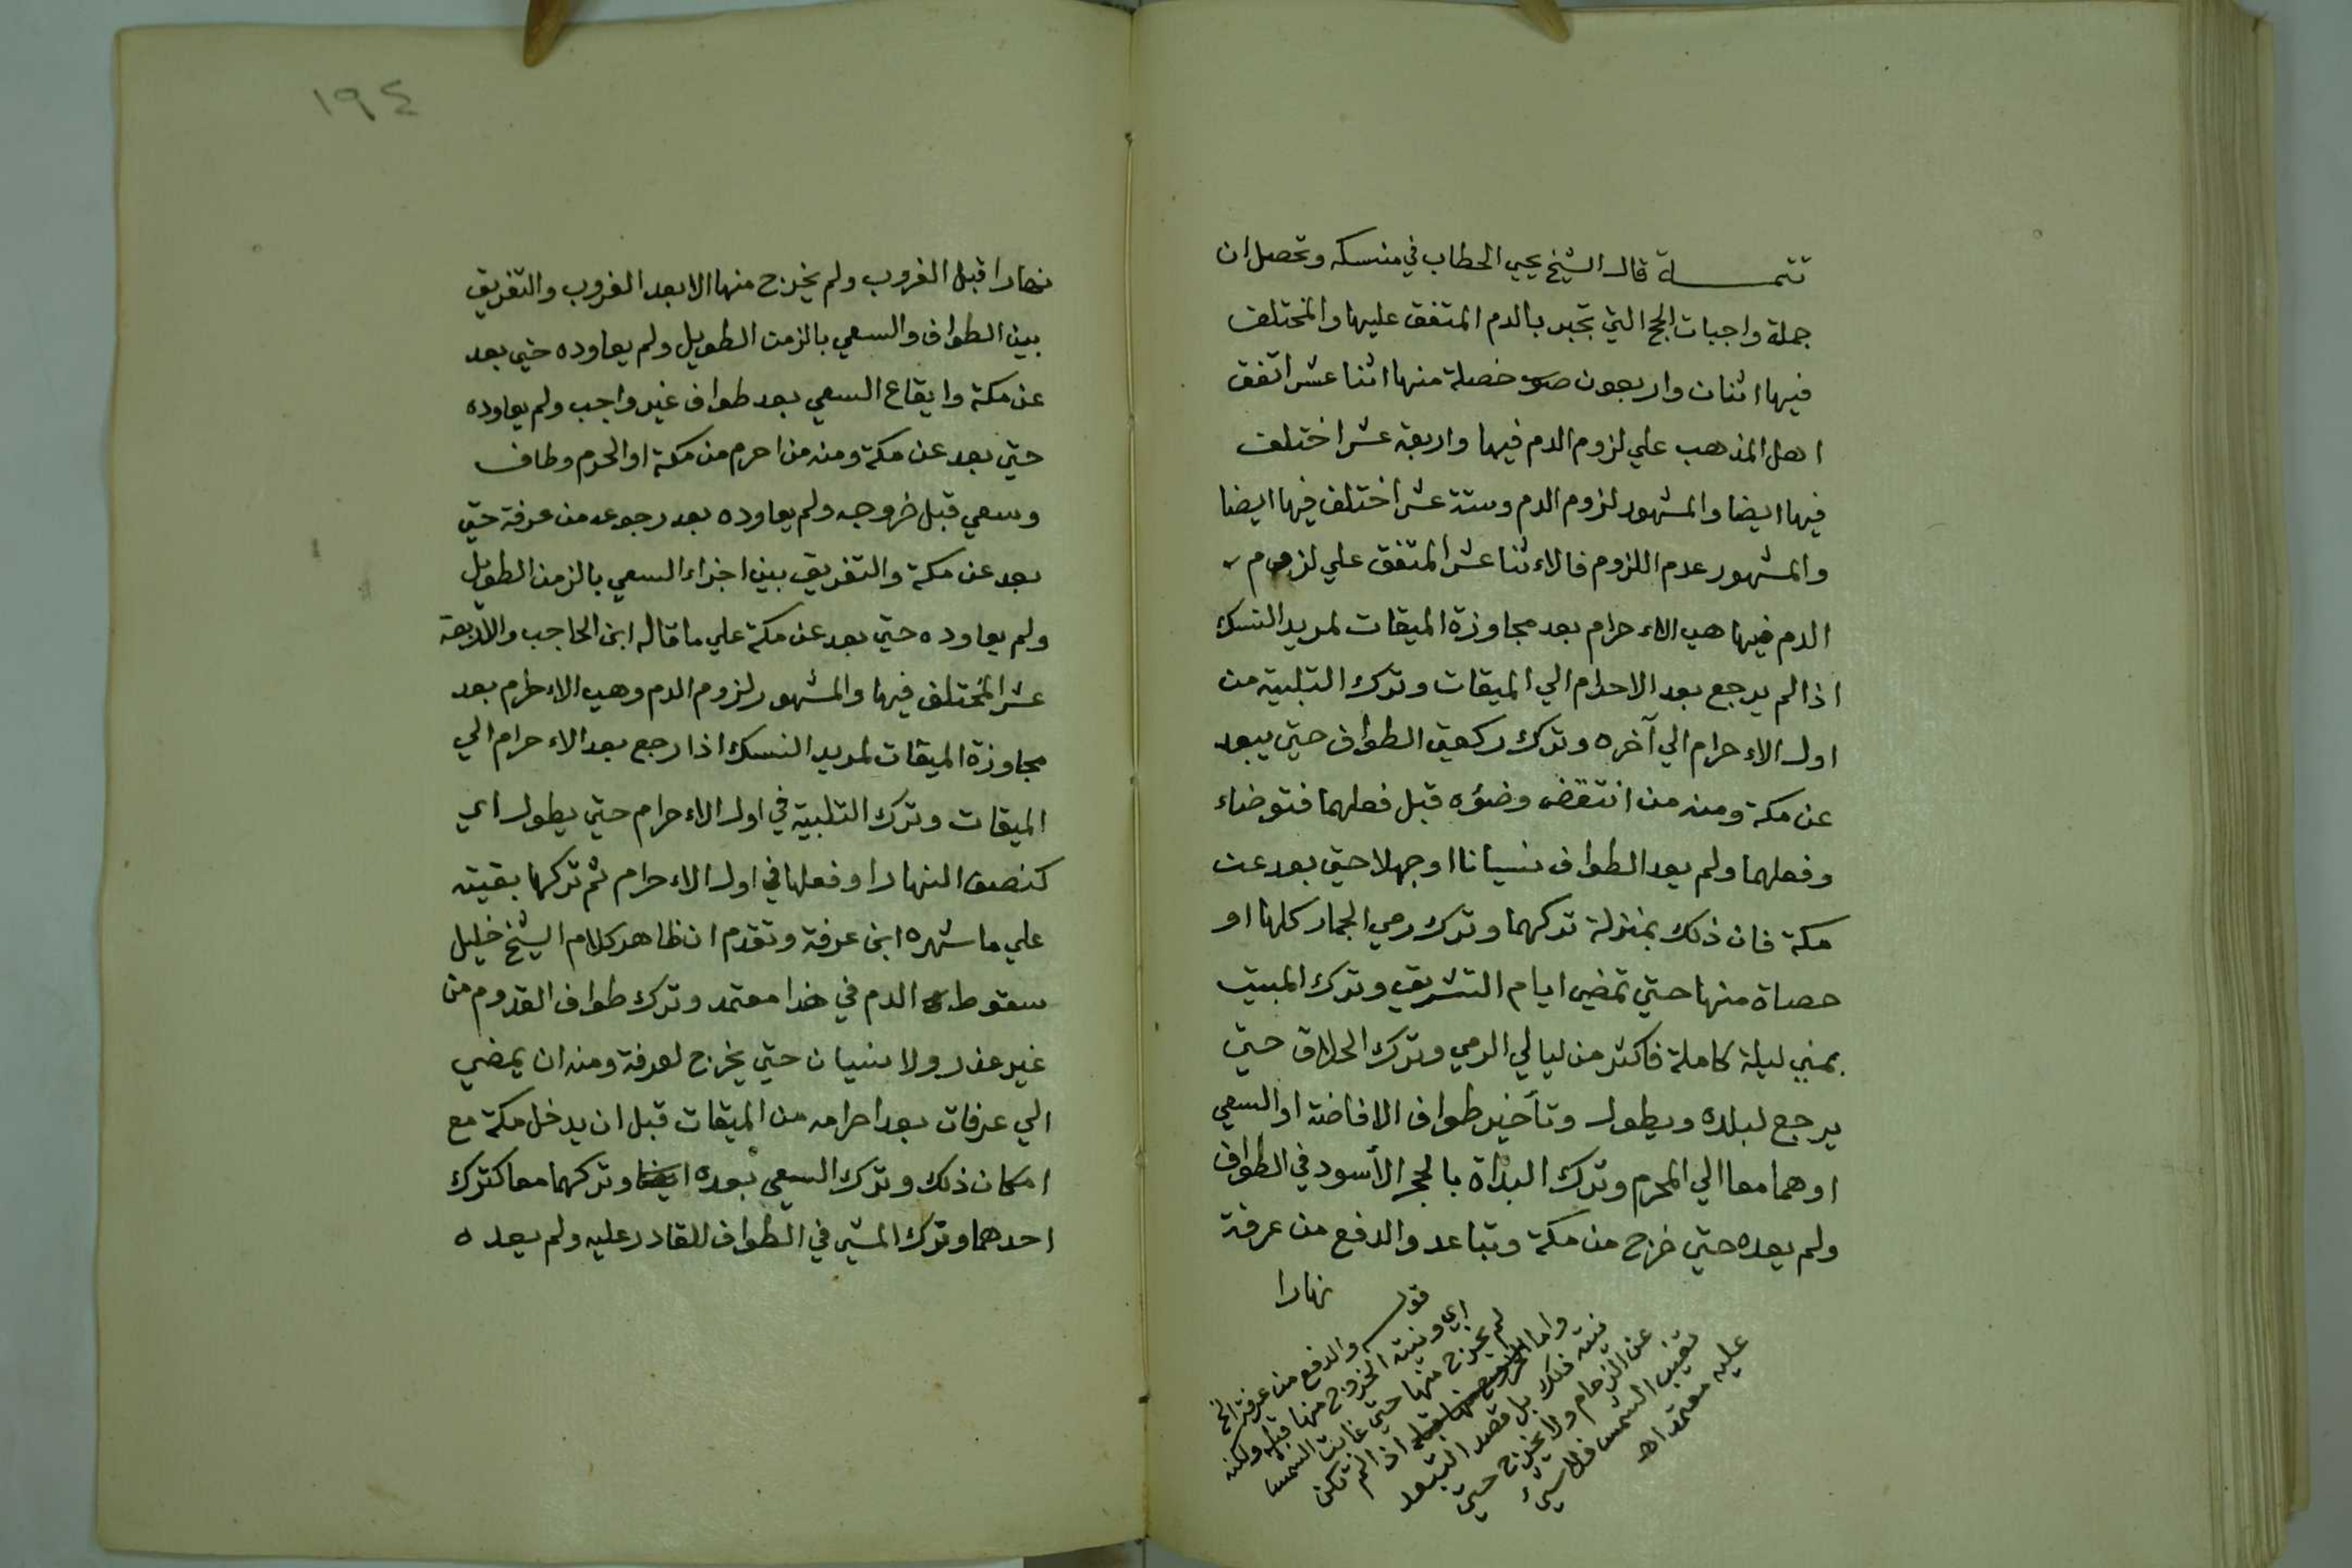 تتمــــة قال الشيخ يحيي الحطاب في منسكه وتحصل ان
جملة واجبات الحج التي تجبر بالدم المتفق عليها والمختلف
فيها اثنان واربعون خصلة منها اثنا عشر اتفق
اهل المذهب علي لزوم الدم فيها واربعة عشر اختلف
فيها ايضا والمشهور لزوم الدم وستة عشر اختلف فيها ايضا
والمشهور عدم اللزوم فالاءثنا عشر المتفق علي لزوم
الدم فيها هي الاءحرام بعد مجاوزة الميقات لمريد النسك
اذا لم يرجع بعد الاحرام الي الميقات وترك التلبية من
اول الاءحرام الي آخره وترك ركعتي الطواف حتي يبعد
عن مكة ومنه من انتقض وضؤه قبل فعلهما فتوضاء
وفعلهما ولم يعد الطواف نسيانا اوجهلا حتي بعد عن
مكة فان ذلك بمنزلة تركهما وترك رمي الجمار كلها او
حصاة منها حتي تمضي ايام التشريق وترك المبيت
بمني ليلة كاملة فاكثر من ليالي الرمي وترك الحلاق حتي
يرجع لبلده ويطول وتأخير طواف الافاضة او السعي
اوهما معا الي المحرم وترك البدأة بالحجر الأسود في الطواف
ولم يعده حتي خرج من مكة وتباعد والدفع من عرفة
نهارا
قوله والدفع من عرفة الخ
اي ونيته الخروج منها قبله ولكنه
لم يخرج منها حتي غابت الشمس
واما اذا لم تكن
نيته ذلك بل قصد التبعد
عن الزحام ولا يخرج حتي
تغيب الشمس فلا شيء
عليه معتمد اهـ
١٩٤
نهارا قبل الغروب ولم يخرج منها الا بعد الغروب والتفريق
بين الطواف والسعي بالزمن الطويل ولم يعاوده حتي بعد
عن مكة وايقاع السعي بعد طواف غير واجب ولم يعاوده
حتي بعد عن مكة ومنه من احرم من مكة او الحرم وطاف
وسعي قبل خروجه ولم يعاوده بعد رجوعه من عرفة حتي
بعد عن مكة والتفريق بين اجزاء السعي بالزمن الطويل
ولم يعاوده حتي بعد عن مكة علي ما قاله ابن الحاجب والأربعة
عشر المختلف فيها والمشهور لزوم الدم وهي الاءحرام بعد
مجاوزة الميقات لمريد النسك اذا رجع بعد الاءحرام الي
الميقات وترك التلبية في اول الاءحرام حتي يطول اي
كنصف النهار او فعلها في اول الاءحرام ثم تركها بقيته
علي ما شهره ابن عرفة وتقدم ان ظاهر كلام الشيخ خليل
سقوط الدم في هذا معتمد وترك طواف القدوم من
غير عذر ولا نسيان حتي يخرج لعرفة ومنه ان يمضي
الي عرفات بعد احرامه من الميقات قبل ان يدخل مكة مع
امكان ذلك وترك السعي بعده ايضا وتركهما معا كترك
احدهما وترك المشي في الطواف للقادر عليه ولم يعده